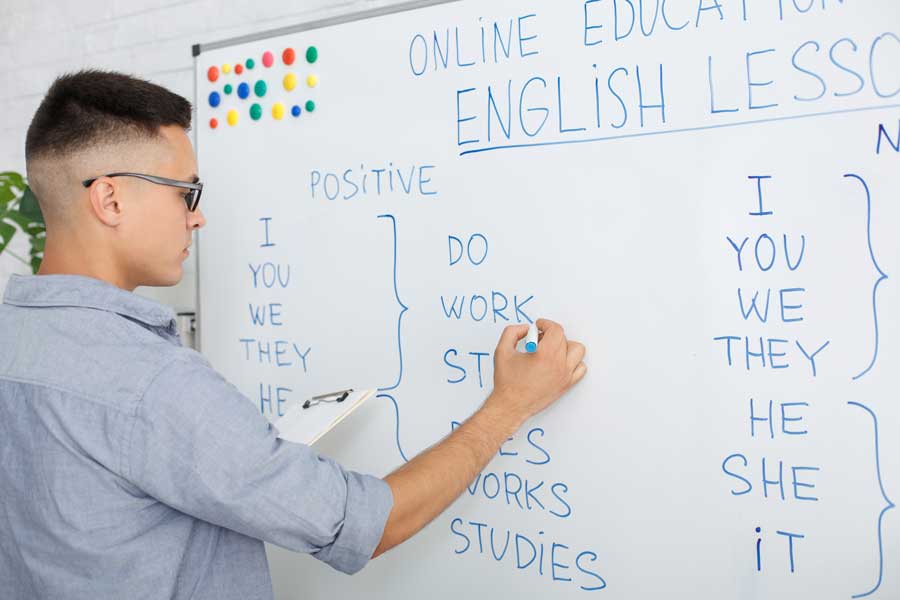 ONLiNE EDUCATION
ENGLiSH LESSO
N
POSiTiVE
I
YOU
WE
THEY
HE
DO
WORK
ST
DOES
WORKS
STUDiES
I
YOU
WE
THEY
HE
SHE
iT